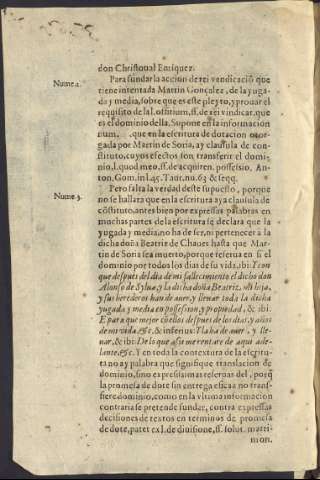 don Christoual Enriquez.
Para fundar la accion de rei vendicatió que
Nume 2.
tiene intentada Martin Gonçalez, de la yuga-
da y media, sobre que es este pleyto, y prouar el
requisito de la l. officium, ff. de rei vindicat. que
es el dominio della. Supone en la informacion
num. , que en la escritura de dotacion otor-
gada por Martin de Soria, ay clausula de con-
stituto, cuyos efectos son transferir el domi-
nio, l. quod meo, ff. de acquiren. possessio. An-
ton. Gom. in l. 45. Taur. nu. 63 & seqq.
Pero falta la verdad deste supuesto, porque
Nume 3.
no se hallara que en la escritura aya clausula de
cõstituto, antes bien por expressas palabras en
muchas partes de la escritura se declara que la
yugada y media, no ha de ser, ni pertenecer a la
dicha doña Beatriz de Chaues hasta que Mar-
tin de Soria sea muerto, porque reserua en si el
dominio por todos los dias de su vida, ibi: Y con
que despues del dia de mi fallecimiento el dicho don
Alonso de Sylua, y la dicha doña Beatriz, mi hija,
y sus herederos han de auer, y lleuar toda la dicha
yugada y media en possession, y propiedad, & ibi.
E para que mejor cõ ellos despues de los dias, y años
de mi vida. &c. & inferius: Y la ha de auer, y lle-
uar, & ibi: De lo que assi me rentare de aqui ade-
lante, &c. Y en toda la contextura de la escritu-
ra no ay palabra que signifique translacion de
dominio, sino expressissimas reseruas del, porq̃
la promesa de dote sin entrega eficaz no trans-
fiere dominio, como en la vltima informacion
contraria se pretende fundar, contra expressas
decisiones de textos en terminos de promesa
de dote, patet ex l. de diuisione, ff. solut. matri-
mon.